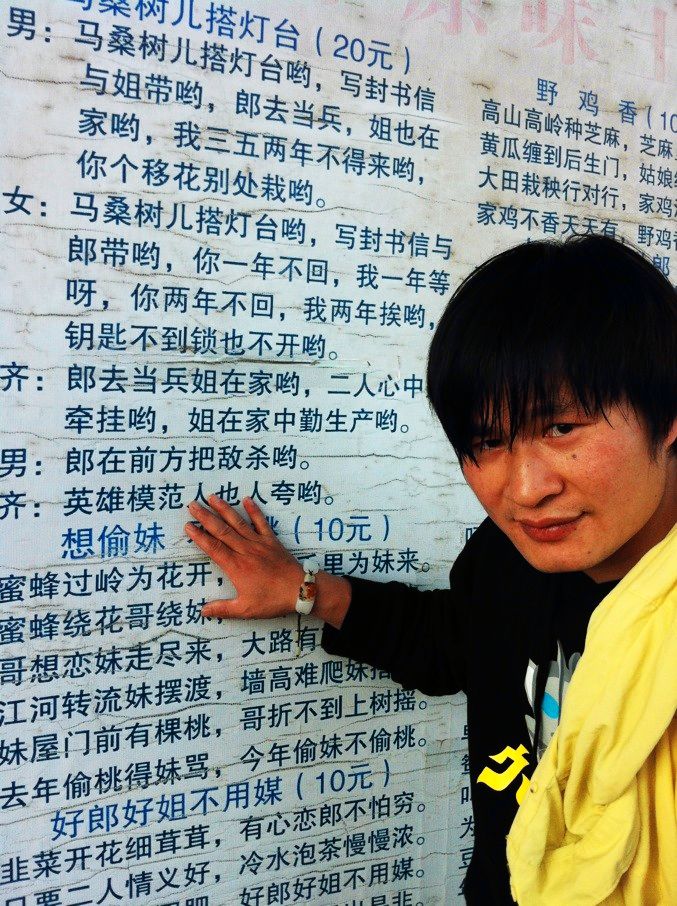 马桑树儿搭灯台（20元）
男：马桑树儿搭灯台哟，写封书信
与姐带哟，郎去当兵，姐也在
家哟，我三五两年不得来哟，
你个移花别处栽哟。
女：马桑树儿搭灯台哟，写封书信与
郎带哟，你一年不回，我一年等
呀，你两年不回，我两年挨哟，
钥匙不到锁也不开哟。
齐：郎去当兵姐在家哟，二人心中
牵挂哟，姐在家中勤生产哟。
男：郎在前方把敌杀哟。
齐：英雄模范人也人夸哟。
想偷妹 桃（10元）
蜜蜂过岭为花开，千里为妹来。
蜜蜂绕花哥绕妹，
哥想恋妹走尽来，大路有
江河转流妹摆渡，墙高难爬妹搭
妹屋门前有棵桃，哥折不到上树摇。
去年偷桃得妹骂，今年偷妹不偷桃。
好郎好姐不用媒（10元）
韭菜开花细茸茸，有心恋郎不怕穷。
只要二人情义好，冷水泡茶慢慢浓。
好郎好姐不用媒。
野鸡香（10
高山高岭种芝麻，芝麻
黄瓜缠到后生门，姑娘
大田栽秧行对行，家鸡
家鸡不香天天有，野鸡香
郎